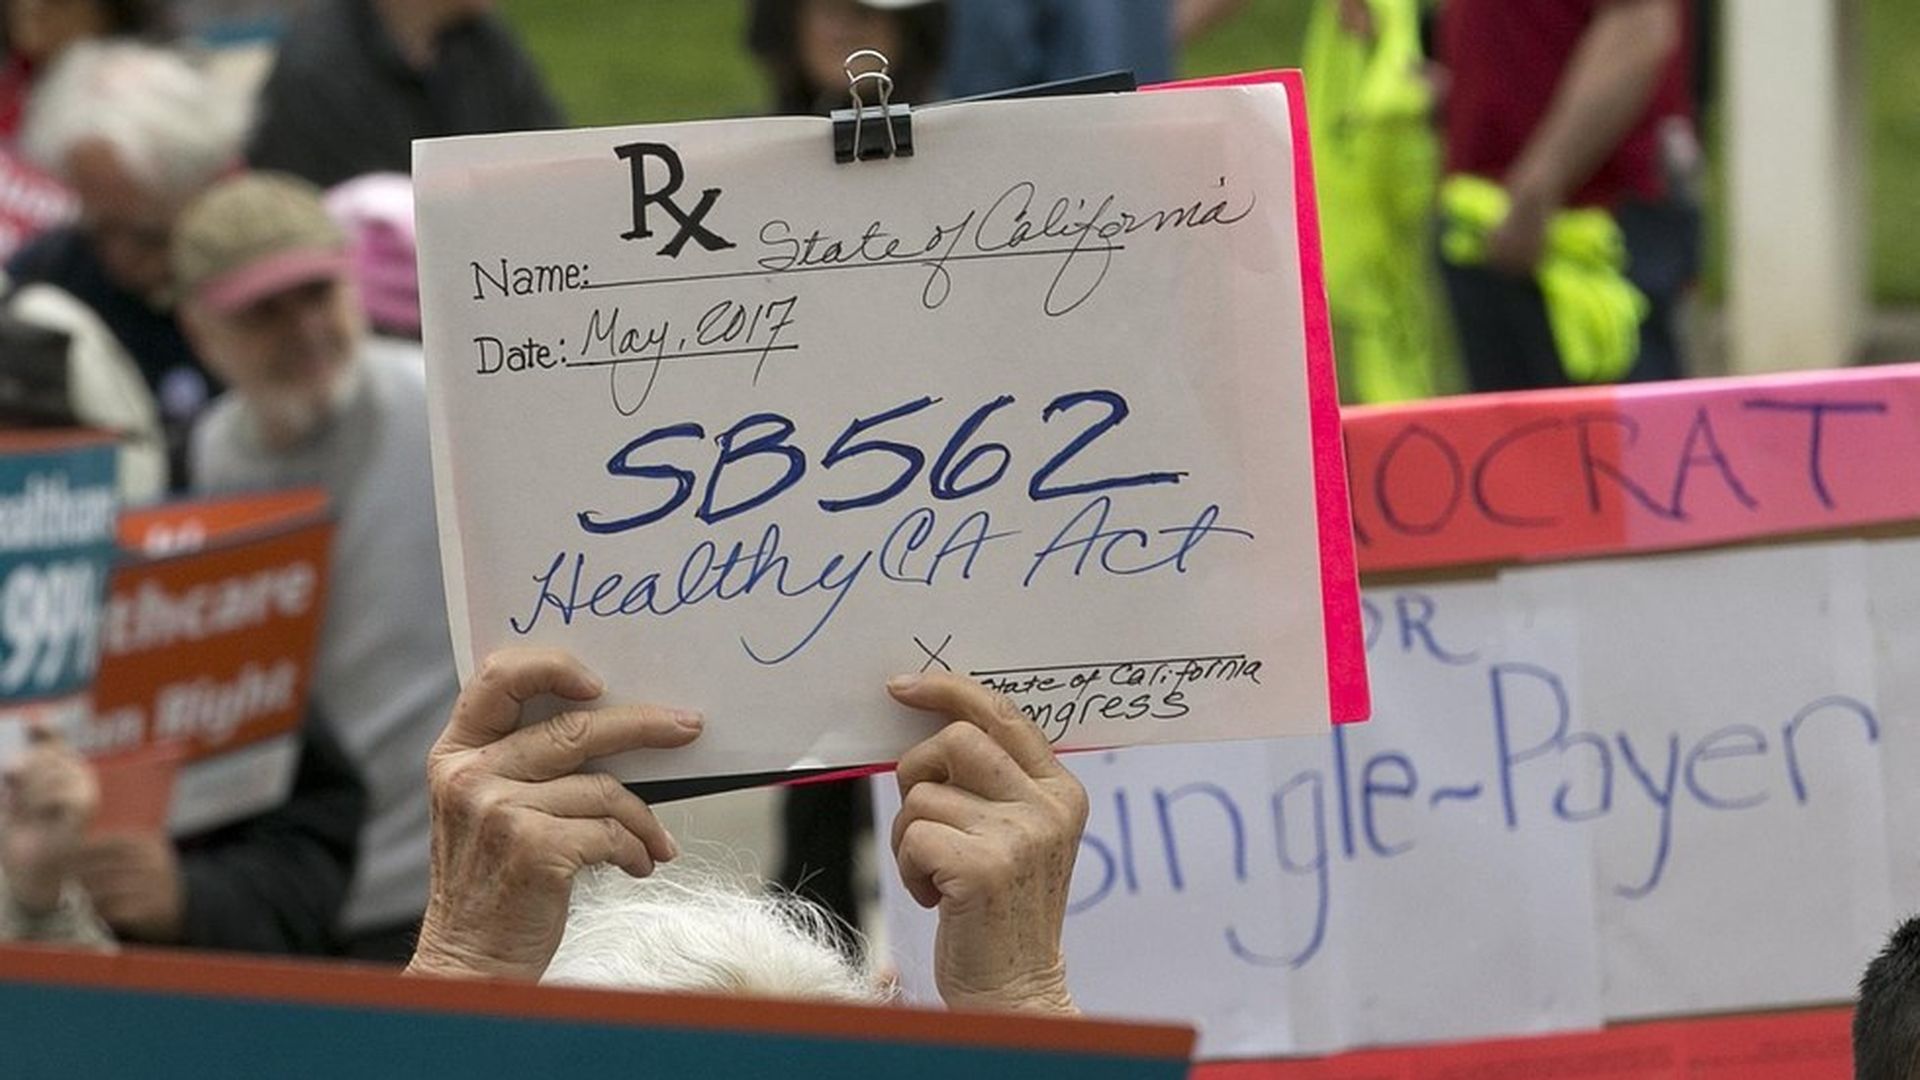 Rx
Name: State of California
Date: May, 2017
SB562
Healthy CA Act
X
State of California
ongress
OCRAT
OR
Single-Payer
ealthcare
99%
thcare
an Right